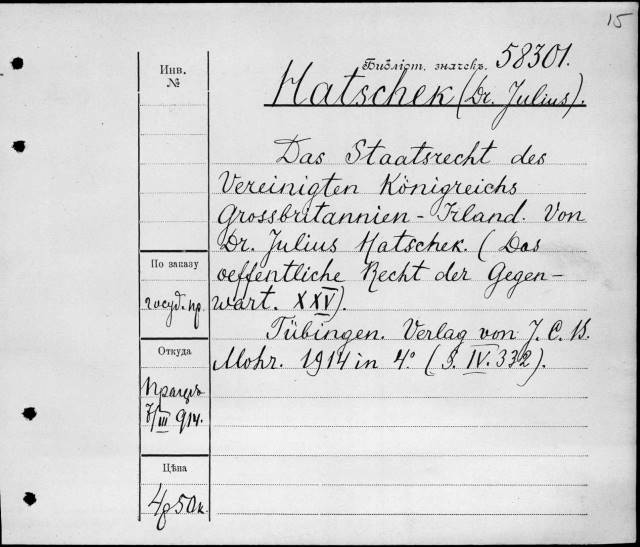 15
Библіот. значекъ. 58301.
Hatschek (Dr. Julius).
Das Staatsrecht des
Vereinigten Königreichs
Grossbritannien - Irland. Von
Dr. Julius Hatschek. (Das
oeffentliche Recht der Gegen-
wart. XXV).
Tübingen. Verlag von J. C. B.
Mohr. 1914 in 4º. (S. IV. 332).
Инв.
№
По заказу
госуд. пр.
Откуда
III 914.
Цѣна
4р 50к.